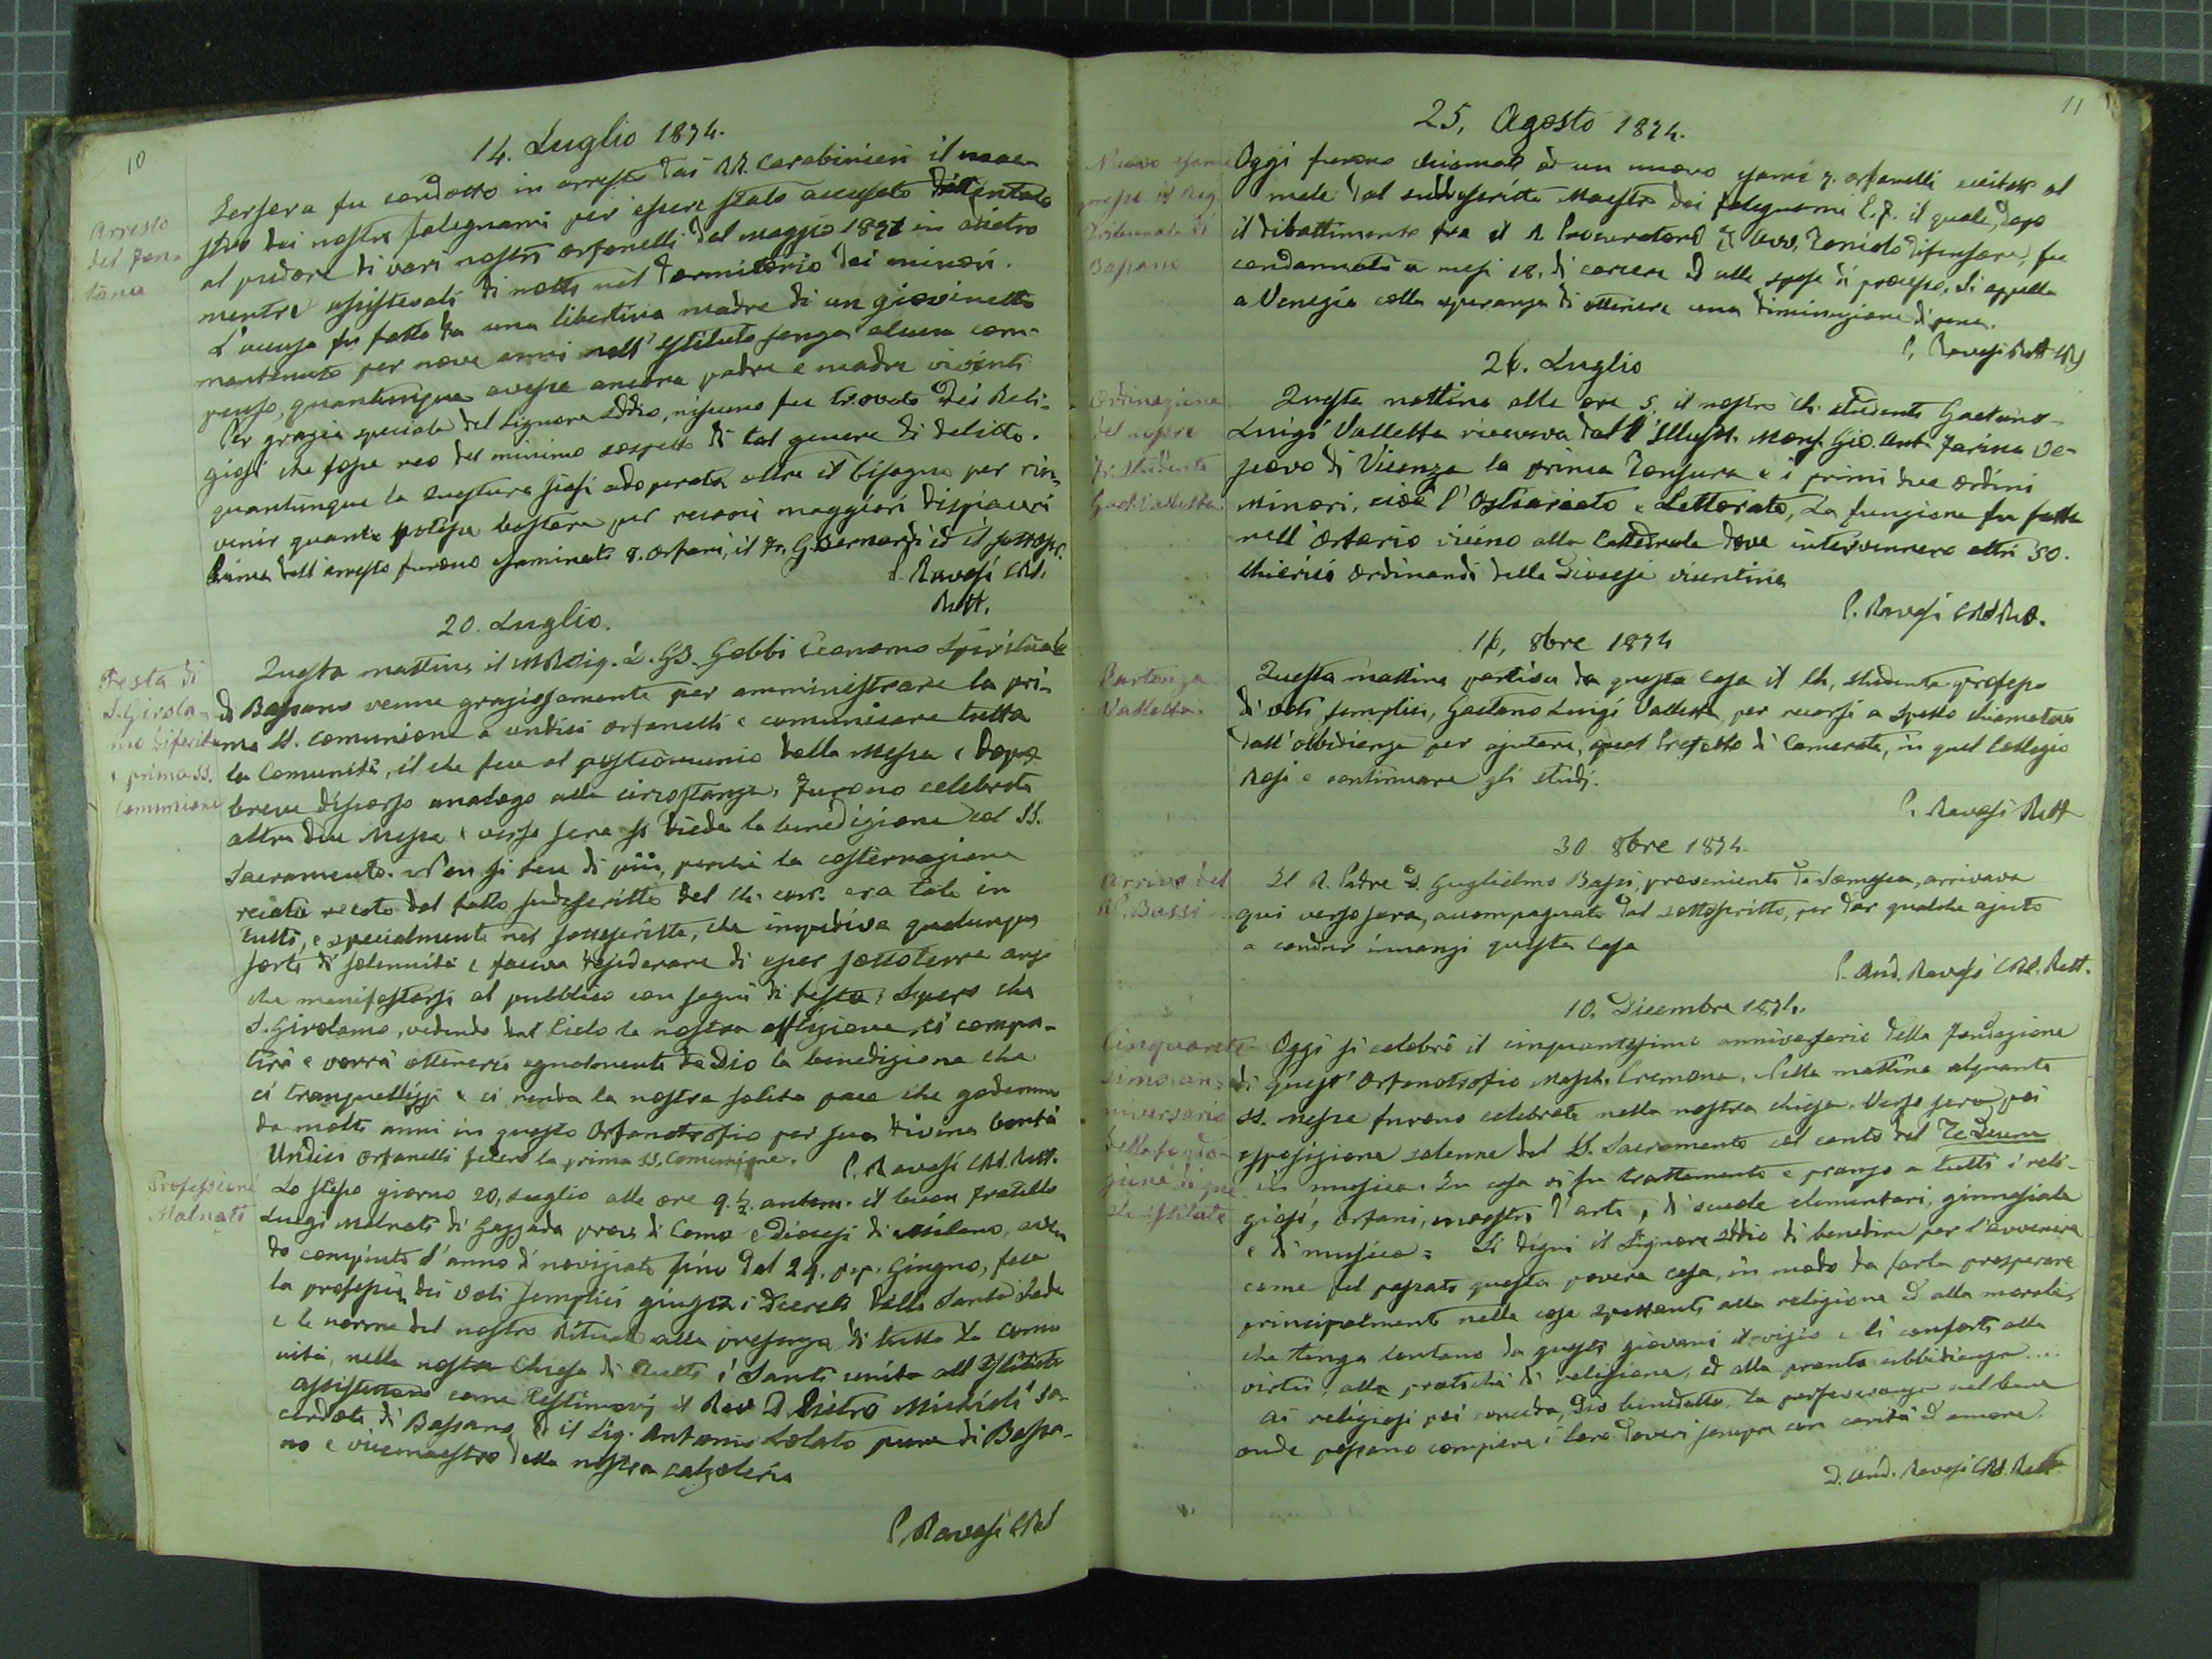 10
14. Luglio 1874.
Arresto
del Fon-
tana
Jersera fu condotto in arresto dai RR. Carabinieri il mae-
stro dei nostri falegnami per essere stato accusato d'attentato
al pudore di vari nostri orfanelli dal maggio 1871 in adietro
mentre assistevali di notte nel dormitorio dei minori.
L'accusa fu fatta da una libertina madre di un giovinetto
mantenuto per nove anni nell'Istituto senza alcun com-
penso, quantunque avesse ancora padre e madre viventi
Per grazia speciale del Signore Iddio, nissuno fu trovato dei Reli-
giosi che fosse reo del minimo sospetto di tal genere di delitto.
quantunque la questura siasi adoperata oltre il bisogno per rin-
venir quanto potesse bastare per recarci maggiori dispiaceri
Prima dell'arresto furono esaminati 8. orfani, il Fr. G. Bernardi ed il sottoscr.
P. Ravasi CRS.
Rett.
20. Luglio.
Festa di
S. Girola-
mo differita
e prima SS.
Comunione
Questa mattina il M.R. Sig. D. GB. Gobbi Economo Spirituale
di Bassano venne graziosamente per amministrare la pri-
ma SS. comunione a undici orfanelli e comunicare tutta
la Comunità, il che fece al postcomunio della Messa e dopo
breve discorso analogo alla circostanza. Furono celebrate
altre due Messe e verso sera si diede la benedizione col SS.
Sacramento. Non si fece di più, perché la costernazione
recata dal fatto sudescritto del 14. corr. era tale in
tutti, e specialmente nel sottoscritto, che impediva qualunque
sorte di solennità e faceva desiderare di esser sotto terra anzi
che manifestarsi al pubblico con segni di festa: Spero che
S. Girolamo, vedendo dal Cielo la nostra afflizione, ci compa-
tirà e vorrà ottenerci egualmente da Dio la benedizione che
ci tranquillizzi e ci renda la nostra solita pace che godemmo
da molti anni in questo Orfanotrofio per sua divina bontà
Undici orfanelli fecero la prima SS. Comunione.
P. Ravasi CRS. Rett.
Professione
Malnati
Lo stesso giorno 20, luglio alle ore 9. ½. antem. il buon fratello
Luigi Malnati di Gazzada prov. di Como e Diocesi di Milano, aven
do compiuto l'anno di noviziato fino dal 29. p.p. Giugno, fece
la professione dei voti semplici giusta i Decreti della Santa Sede
e le norme del nostro Rituale alla presenza di tutta la comu
nità, nella nostra Chiesa di Tutti i Santi unita all'Istituto
assistettero come testimonj il Rev. D. Pietro Michieli sa-
cerdote di Bassano, ed il Sig. Antonio Lolato pure di Bassa-
no e vicemaestro della nostra calzoleria
P. Ravasi CRS
11
25, Agosto 1874.
Nuovo esame
presso il Reg
Tribunale di
Bassano
Oggi furono chiamati ad un nuovo esame 7. orfanelli eccitati al
male dal suddescritto Maestro dei falegnami C.F. il quale, dopo
il dibattimento fra il R. Procuratore e l'Avv. Toniolo difensore, fu
condannato a mesi 18. di carcere ed alle spese di processo. Si appella
a Venezia colla speranza di ottenere una diminuzione di pena.
P. Ravasi Rett. CRS
26. Luglio
Ordinazione
del nostro
Fr. studente
Gaet. Valletta
Questa mattina alle ore 5. il nostro Ch. studente Gaetano
Luigi Valletta riceveva dall'Illust. Mons. Gio. Ant. Farina Ve-
scovo di Vicenza la prima Tonsura e i primi due ordini
Minori, cioè l'Ostiariato e Lettorato. La funzione fu fatta
nell'Oratorio vicino alla Cattedrale dove intervennero altri 50.
chierici ordinandi della Diocesi vicentina
P. Ravasi CRS Rett.
16, 8bre 1874
Partenza
Valletta.
Questa mattina partiva da questa casa il Ch. studente professo
di voti semplici, Gaetano Luigi Valletta, per recarsi a Spello chiamatovi
dall'obbidienza per ajutare, qual Prefetto di Camerata, in quel Collegio
Rosi e continuare gli studi.
P. Ravasi Rett
30. 8bre 1874.
Arrivo del
P. Bassi
Il R. Padre D. Guglielmo Bassi, proveniente da Somasca, arrivava
qui verso sera, accompagnato dal sottoscritto, per dar qualche ajuto
a condur innanzi questa casa
P. And. Ravasi CRS. Rett.
10. Dicembre 1874.
Cinquante
simo an-
niversario
della fonda-
zione di que
sto istituto
Oggi si celebrò il cinquantesimo anniversario della fondazione
di quest'Orfanotrofio Masch. Cremona. Nella mattina alquante
SS. messe furono celebrate nella nostra chiesa. Verso sera poi
esposizione solenne del SS. Sacramento col canto del Te Deum
in musica. In casa vi fu trattamento e pranzo a tutti i reli-
giosi, orfani, maestri d'arte, di scuole elementari, ginnasiale
e di musica: Si degni il Signore Iddio di benedire per l'avvenire
come pel passato questa povera casa, in modo da farla prosperare
principalmente nelle cose spettanti alla religione ed alla morale,
che tenga lontano da questi giovani il vizio e li conforti alla
virtù, alle pratiche di religione, ed alla pronta ubbidienza....
Ai religiosi poi conceda, Dio benedetto, la perseveranza nel bene
onde possano compiere i loro doveri sempre con carità ed amore.
D. And. Ravasi CRS. Rett.